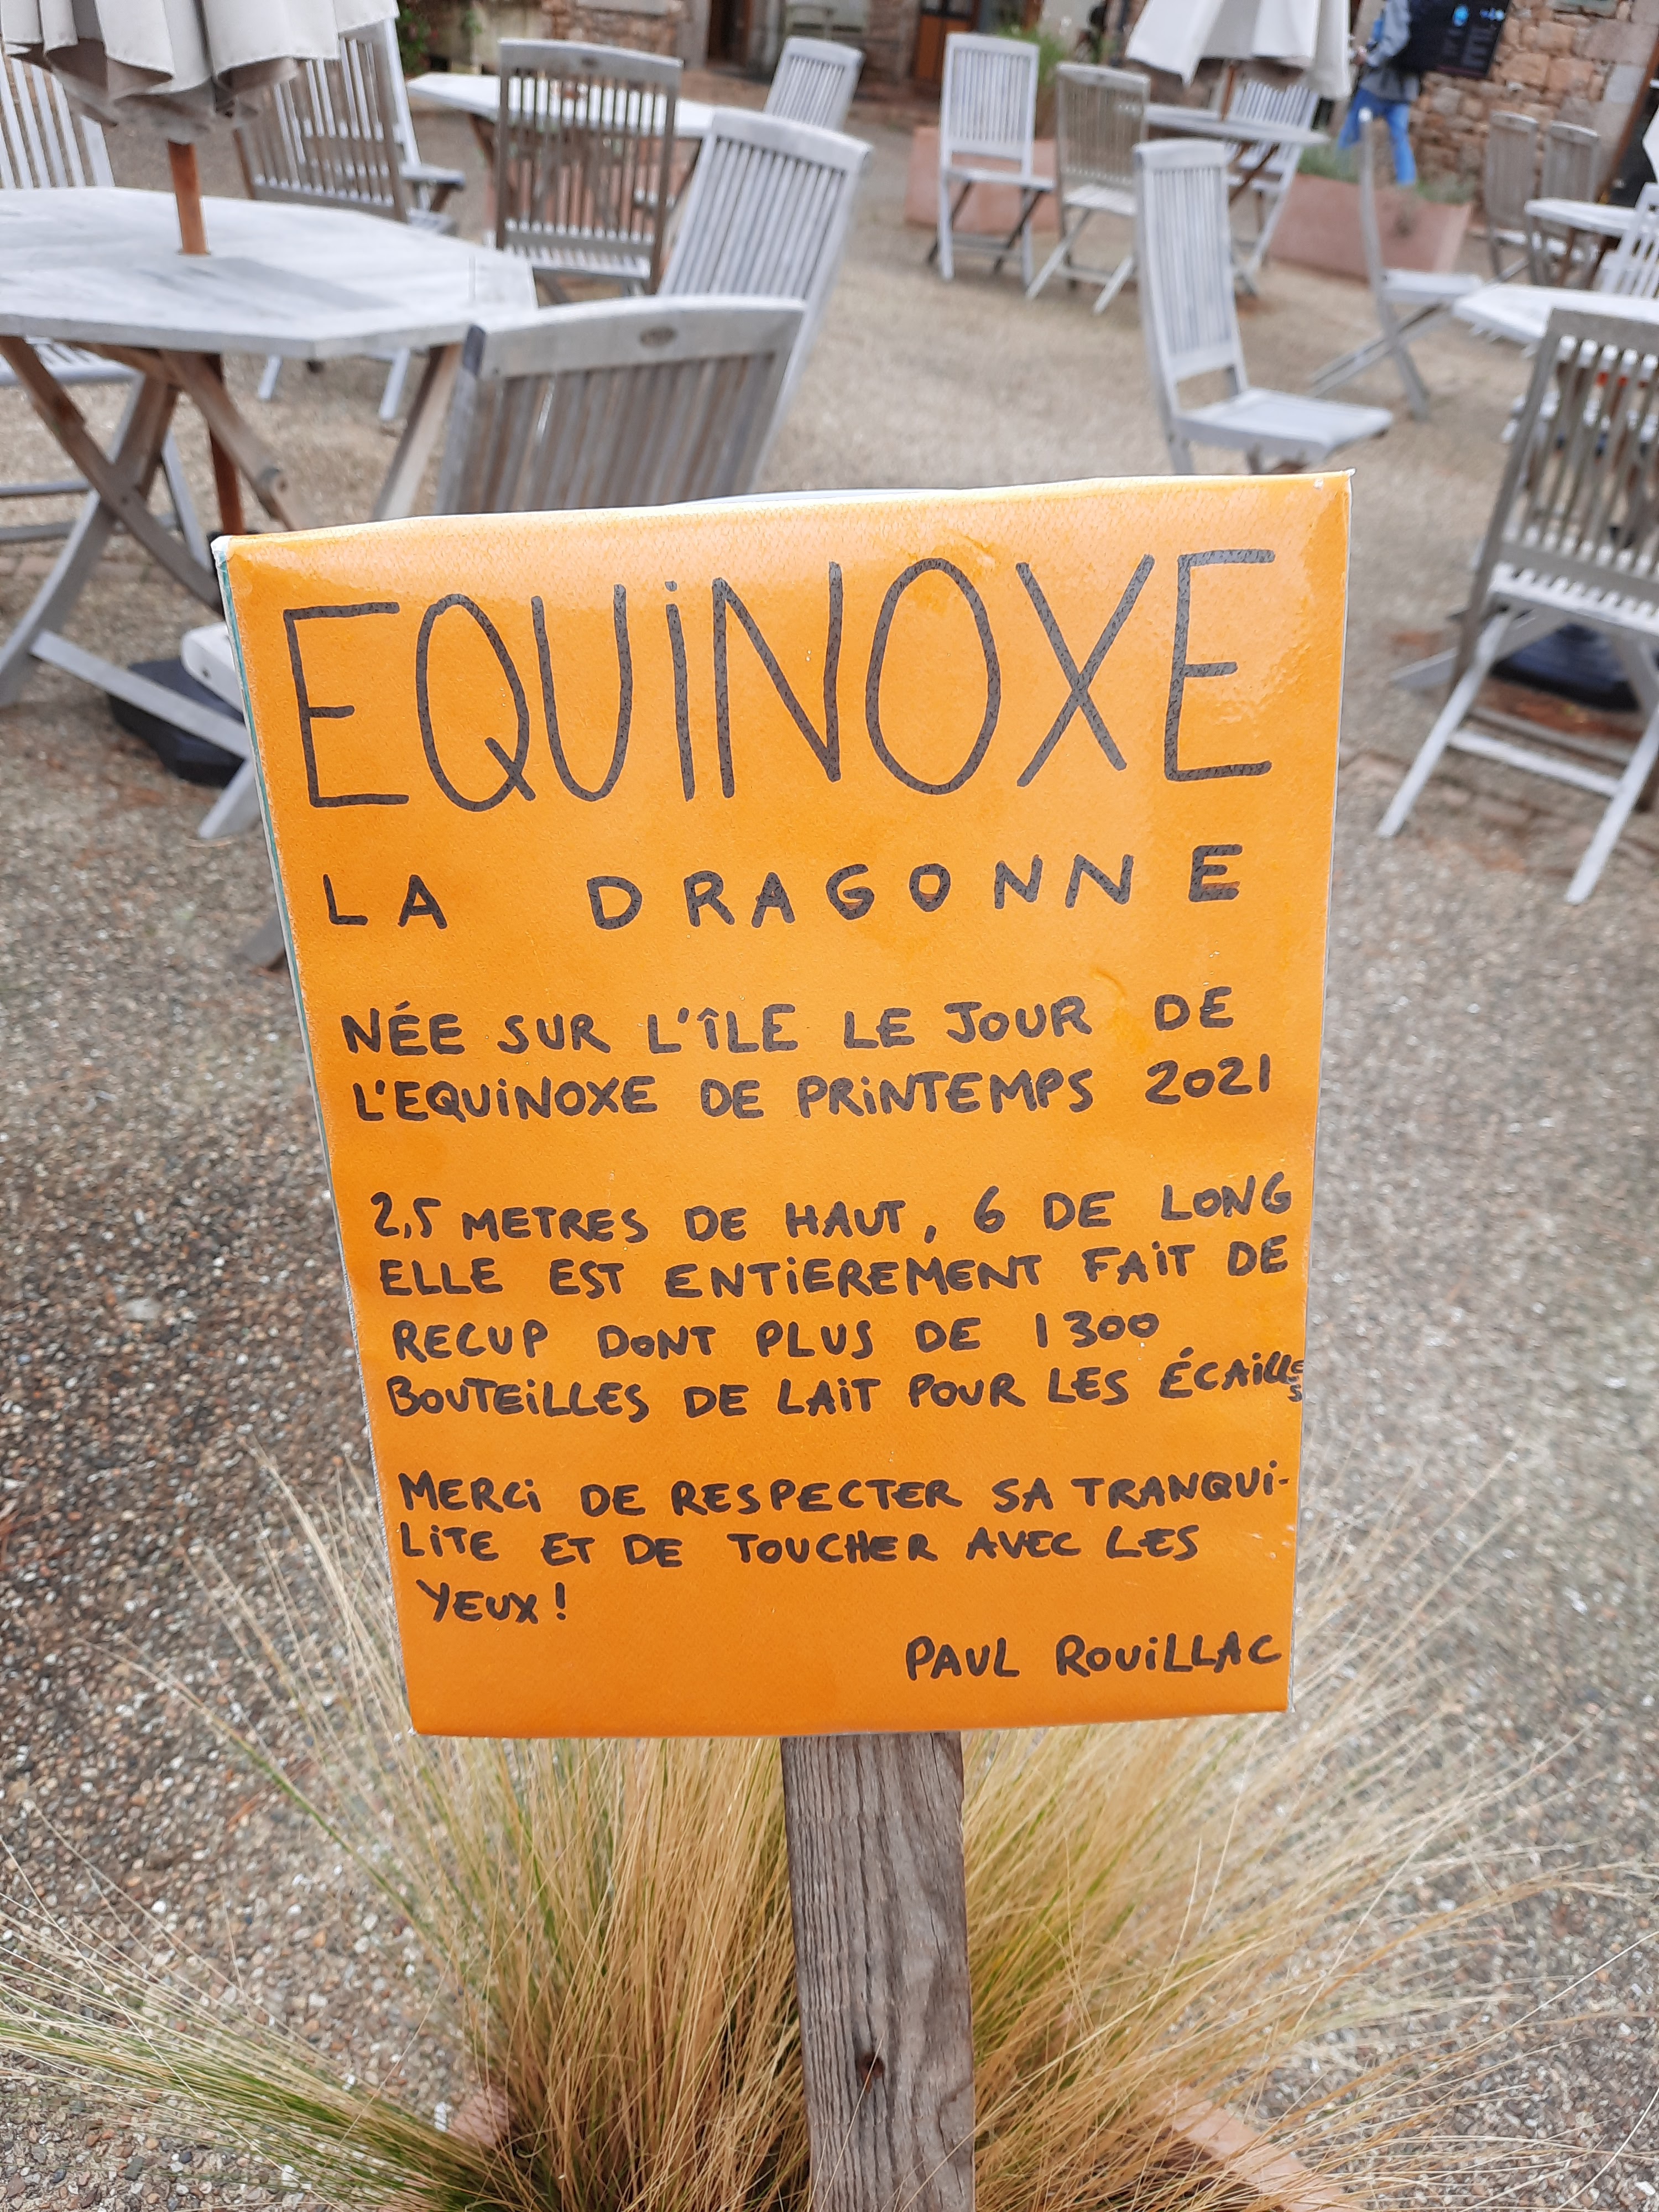 EQUiNOXE
LA DRAGONNE
NÉE SUR L'ÎLE LE JOUR DE
L'EQUiNOXE DE PRiNTEMPS 2021
2,5 METRES DE HAUT, 6 DE LONG
ELLE EST ENTiEREMENT FAiT DE
RECUP DONT PLUS DE 1300
BOUTEiLLES DE LAiT POUR LES ÉCAiLLES
MERCi DE RESPECTER SA TRANQUi-
LiTE ET DE TOUCHER AVEC LES
YEUX!
PAUL ROUiLLAC